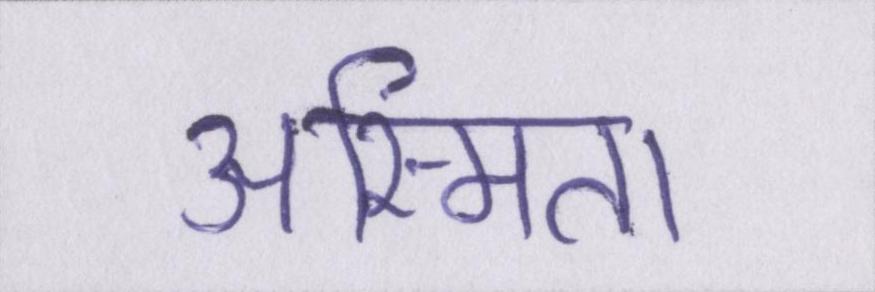 अस्मिता